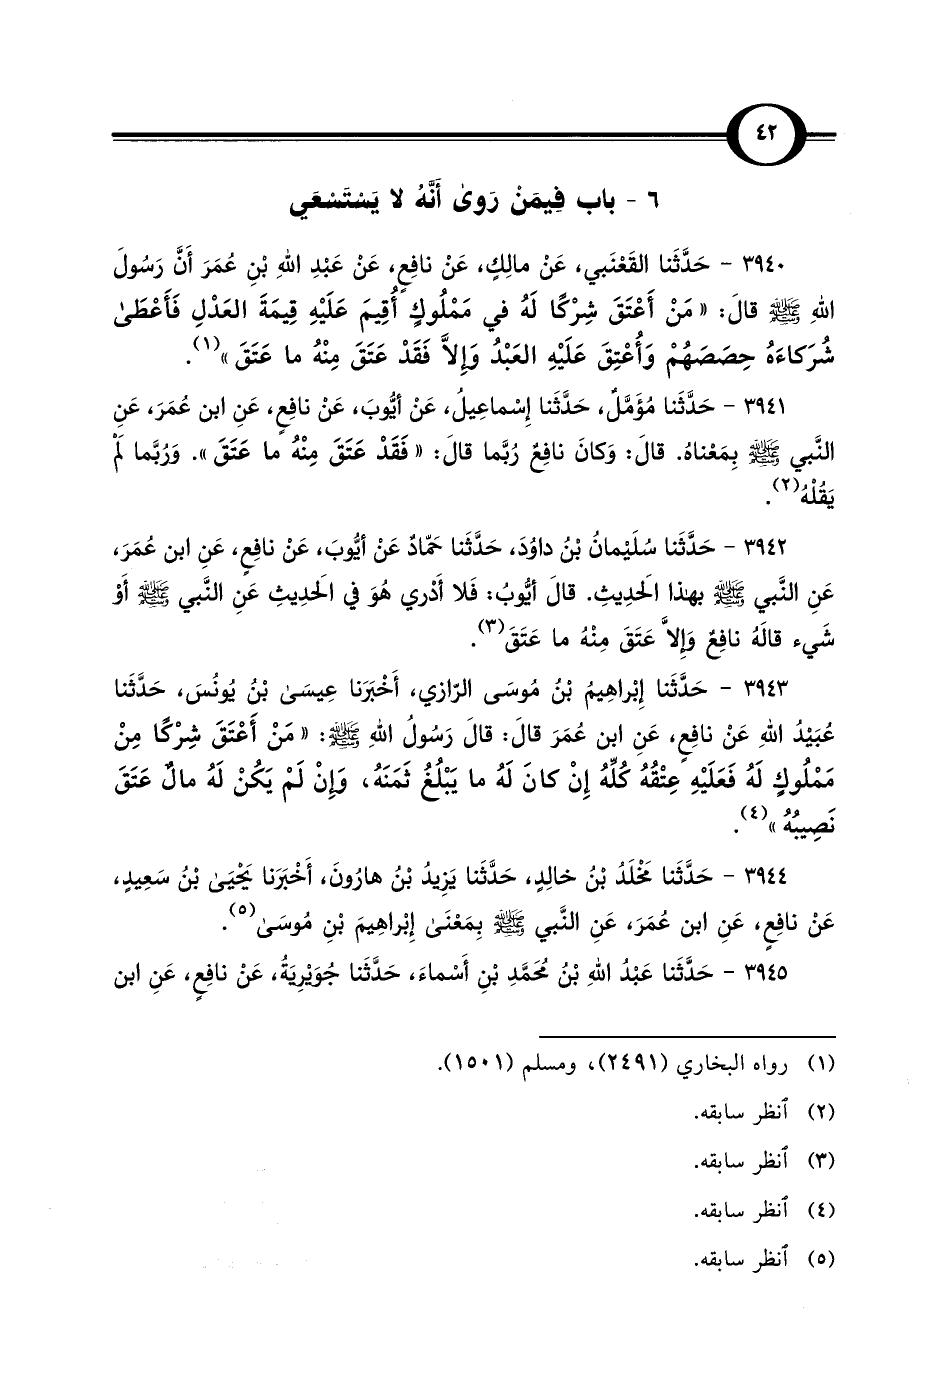 ٤٢
٦ - باب فِيمَنْ رَوىٰ أَنَّهُ لا يَسْتَسْعَي
٣٩٤٠ - حَدَّثَنا القَعْنَبي، عَنْ مالِكٍ، عَنْ نافِعٍ، عَنْ عَبْدِ اللهِ بْنِ عُمَرَ أَنَّ رَسُولَ
اللهِ ﷺ قالَ: « مَنْ أَعْتَقَ شِرْكًا لَهُ في مَمْلُوكٍ أُقِيمَ عَلَيْهِ قِيمَةَ العَدْلِ فَأَعْطَىٰ
شُرَكاءَهُ حِصَصَهُمْ وَأُعْتِقَ عَلَيْهِ العَبْدُ وَإلاَّ فَقَدْ عَتَقَ مِنْهُ ما عَتَقَ »(١).
٣٩٤١ - حَدَّثَنا مُؤَمَّلٌ، حَدَّثَنا إِسْماعِيلُ، عَنْ أيُّوبَ، عَنْ نافِعٍ، عَنِ ابن عُمَرَ، عَنِ
النَّبي ﷺ بِمَعْناهُ. قالَ: وَكانَ نافِعٌ رُبَّما قالَ: « فَقَدْ عَتَقَ مِنْهُ ما عَتَقَ ». وَرُبَّما لَمْ
يَقُلْهُ(٢).
٣٩٤٢ - حَدَّثَنا سُلَيْمانُ بْنُ داوُدَ، حَدَّثَنا حَمّادٌ عَنْ أيُّوبَ، عَنْ نافِعٍ، عَنِ ابن عُمَرَ،
عَنِ النَّبي ﷺ بهذا الَحدِيثِ. قالَ أيُّوبُ: فَلا أَدْري هُوَ في الَحدِيثِ عَنِ النَّبي ﷺ أَوْ
شَيء قالَهُ نافِعٌ وَإلاَّ عَتَقَ مِنْهُ ما عَتَقَ(٣).
٣٩٤٣ - حَدَّثَنا إِبْراهِيمُ بْنُ مُوسَى الرّازي، أَخْبَرَنا عِيسَىٰ بْنُ يُونُسَ، حَدَّثَنا
عُبَيْدُ اللهِ عَنْ نافِعٍ، عَنِ ابن عُمَرَ قالَ: قالَ رَسُولُ اللهِ ﷺ: « مَنْ أَعْتَقَ شِرْكًا مِنْ
مَمْلُوكٍ لَهُ فَعَلَيْهِ عِتْقُهُ كُلِّهِ إِنْ كانَ لَهُ ما يَبْلُغُ ثَمَنَهُ، وَإِنْ لَمْ يَكُنْ لَهُ مالٌ عَتَقَ
نَصِيبُهُ »(٤).
٣٩٤٤ - حَدَّثَنا مَخْلَدُ بْنُ خالِدٍ، حَدَّثَنا يَزِيدُ بْنُ هارُونَ، أَخْبَرَنا يَحْيَىٰ بْنُ سَعِيدٍ،
عَنْ نافِعٍ، عَنِ ابن عُمَرَ، عَنِ النَّبي ﷺ بِمَعْنَىٰ إِبْراهِيمَ بْنِ مُوسَىٰ(٥).
٣٩٤٥ - حَدَّثَنا عَبْدُ اللهِ بْنُ مُحَمَّدِ بْنِ أَسْماءَ، حَدَّثَنا جُوَيْرِيَةُ، عَنْ نافِعٍ، عَنِ ابن
(١) رواه البخاري (٢٤٩١)، ومسلم (١٥٠١).
(٢) ٱنظر سابقه.
(٣) ٱنظر سابقه.
(٤) ٱنظر سابقه.
(٥) ٱنظر سابقه.